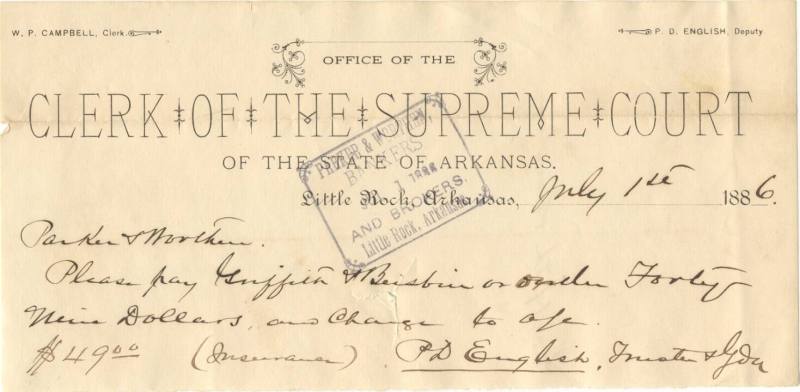 W. P. CAMPBELL, Clerk.
P. D. ENGLISH, Deputy
OFFICE OF THE
CLERK OF THE SUPREME COURT
OF THE STATE OF ARKANSAS.
Little Rock, Arkansas, July 1st 1886.
BROKERS
1 1886
AND BROKERS.
Little Rock, Arkansas
Parker & Worthen.
Please pay Griffith & or order Forty
Nine Dollars, and Charge to a/c.
$49.00 (Insurance) P D English, Trustee &